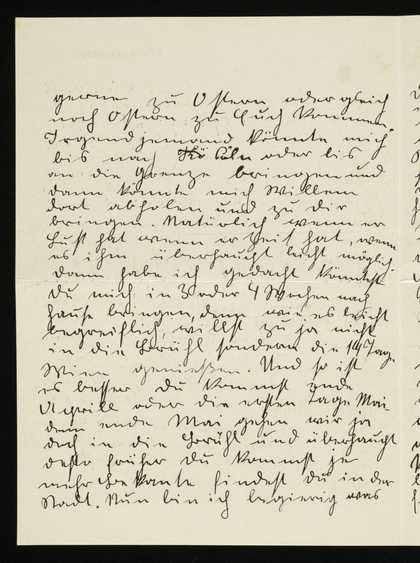 gerne zu Ostern oder gleich
nach Ostern zu Euch kommen.
Irgend jemand könnte mich
bis nach Köln oder bis
an die Grenze bringen und
dann könnte mich Willem
dort abholen und zu dir
bringen. Natürlich wenn er
Lust hat wenn er Zeit hat, wenn
es ihm überhaupt leicht möglich
dann habe ich gedacht könntest
du mich in 3 oder 4 Wochen nach
hause bringen, denn wie es leicht
begreiflich, willst zu ja nicht
in die Brühl sondern die 14 Tage
Wien genießen. Und so ist
es besser du kommst ende
Aprill oder die ersten Tage Mai
denn ende Mai gehen wir ja
doch in die Brühl und überhaupt
desto früher du kommst je
mehr Bekante findest du in der
Stadt. Nun bin ich begierig was